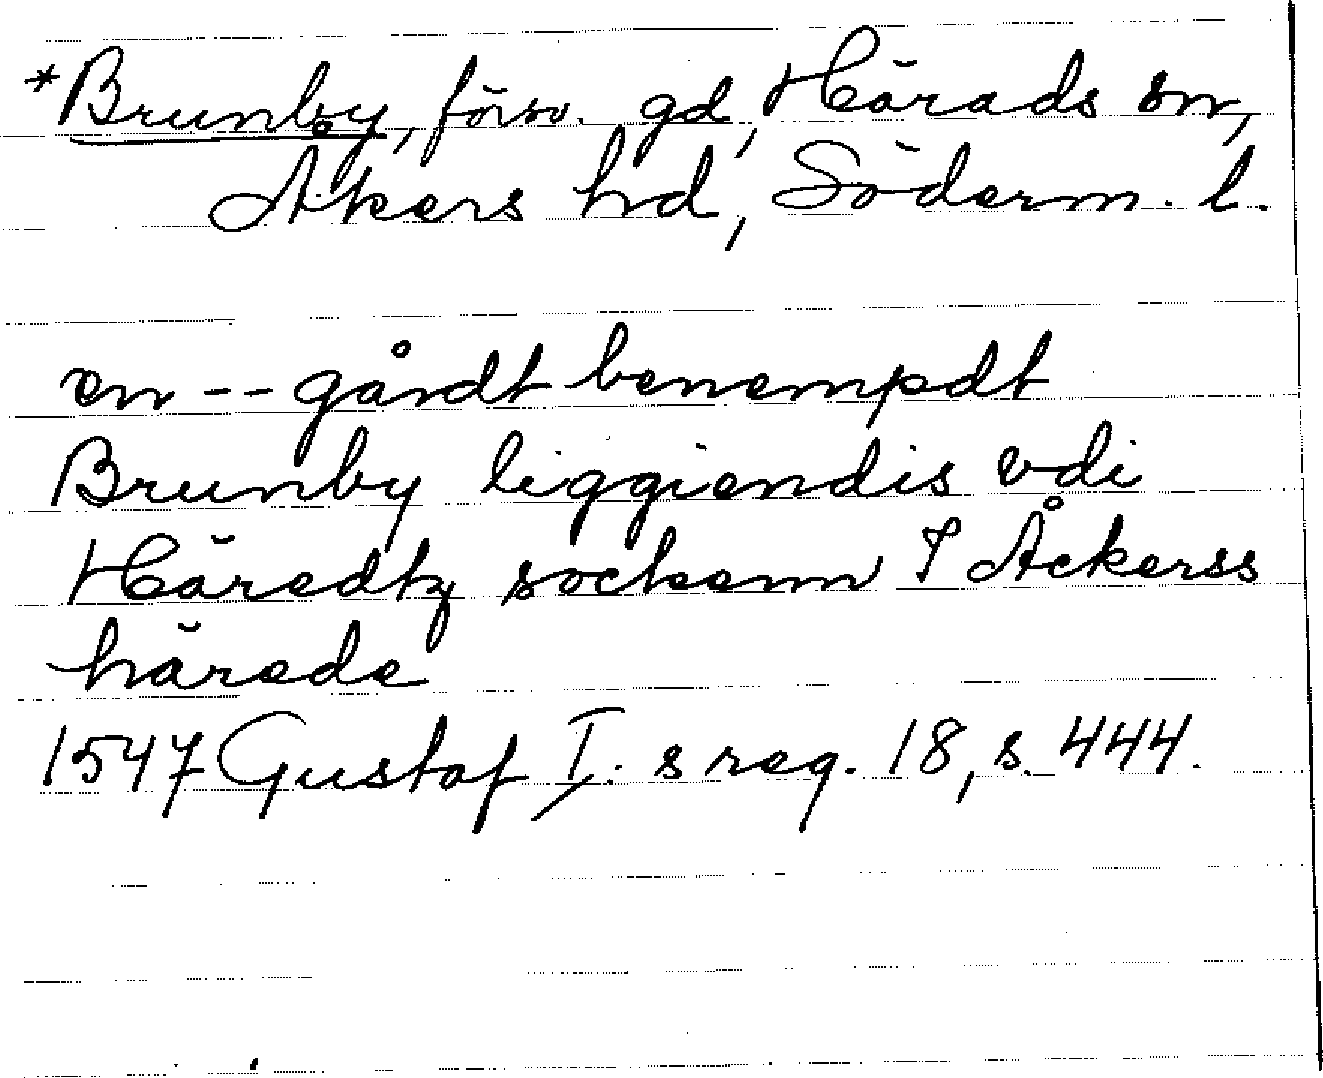 *Brunby, försv. gd, Härads sn,
Åkers hd, Söderm. l.
en -- gårdt benempdt
Brunby liggiendis vdi
Häredtz sockenn I Åckerss
härede
1547 Gustaf I. s reg. 18, s. 444.